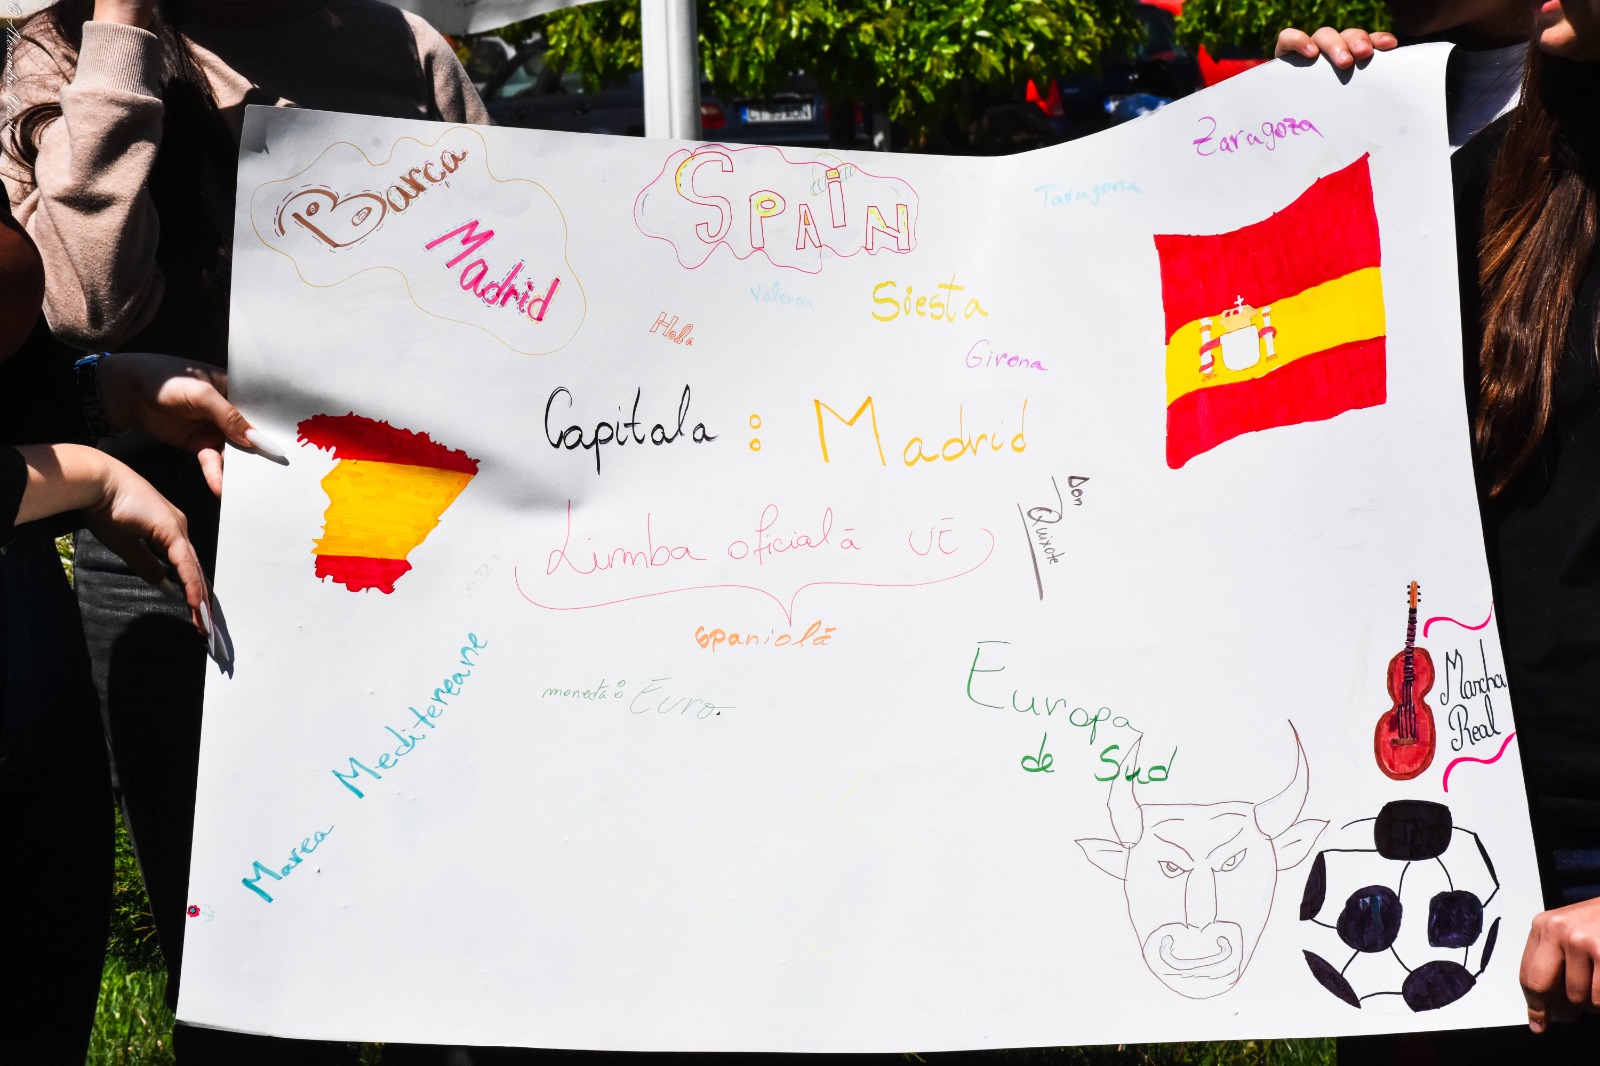 Barca
Madrid
SPAIN
Zaragoza
Taragona
Valencia
Siesta
Hola
Girona
Capitala : Madrid
Don
Quixote
Limba oficială UE
spaniolă
monedă: Euro.
Marea Mediteneane
Europa
de Sud
Marcha
Real